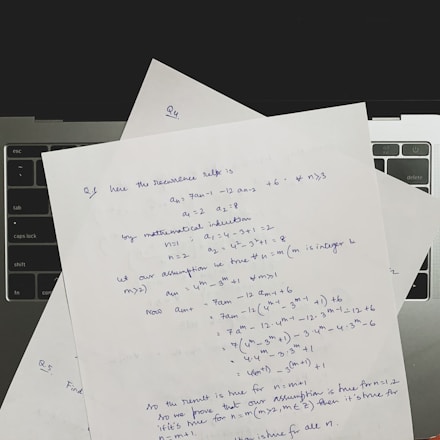 Q4
Q1 here the recurrence reln is
an = 7an-1 - 12 an-2 + 6 ∀ n≥3
a1=2 a2=8
by mathematical induction
n=1 : a1 = 4-3+1 = 2
n=2 : a2 = 4²-3²+1 = 8
let our assumption is true ∀ n=m (m is integer &
m>2) am = 4^m - 3^m + 1 ∀ m≥1
Now am+1 = 7am - 12 am-1 + 6
= 7am - 12(4^m-1 - 3^m-1 + 1) + 6
= 7am - 12.4^m-1 - 12.3^m-1 - 12 + 6
= 7(4^m - 3^m + 1) - 3.4^m - 4.3^m - 6
= 4.4^m - 3.3^m + 1
= 4(m+1) - 3(m+1) + 1
so the result is true for n=m+1
so we prove that our assumption is true for n=1,2
if it's true for n=m(m>2, m∈Z) then it's true for
n=m+1.
is true for all n.
Q.5
Find
esc
tab
caps lock
shift
fn
control
delete